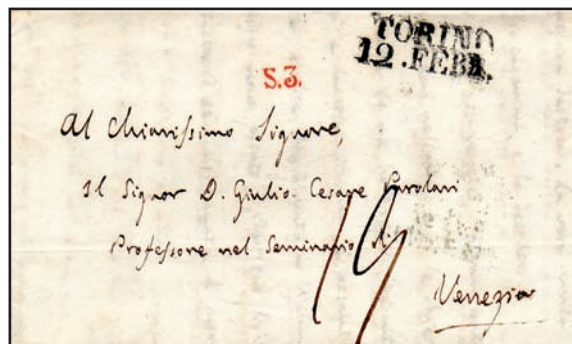 TORINO
12. FEBB.
S.3.
Al Chiarissimo Signore,
Il Signor D. Giulio Cesare Parolari
Professore nel Seminario di
Venezia